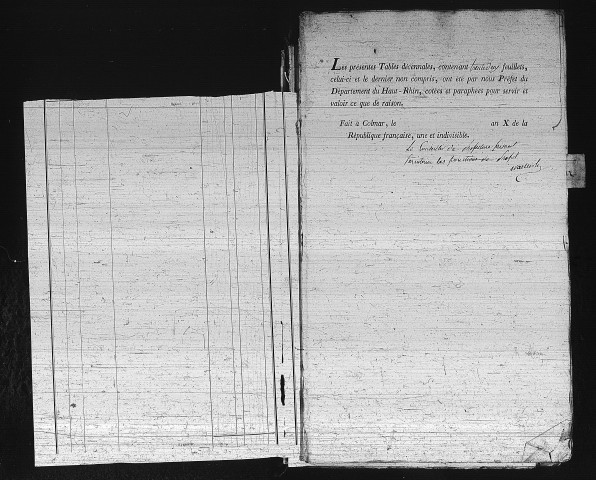 Les présentes Tables décennales, contenant feuillets,
celui-ci et le dernier non compris, ont été par nous Préfet du
Département du Haut-Rhin, cottées et paraphées pour servir et
valoir ce que de raison.
Fait à Colmar, le an X de la
République française, une et indivisible.
Le Conseiller de préfecture
les fonctions de Préfet